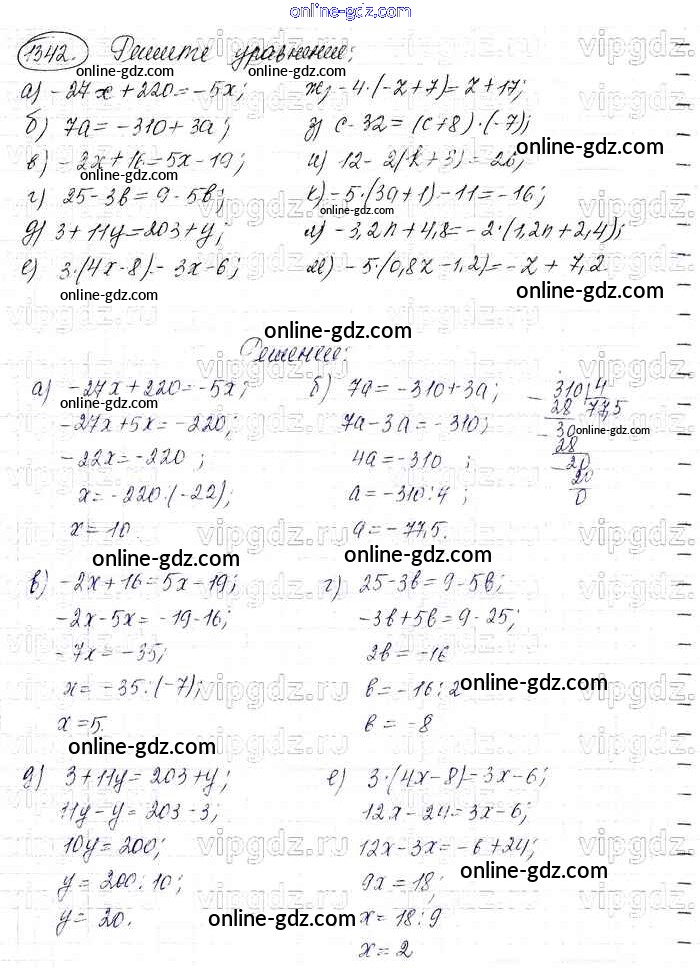 online-gdz.com
1342. Решите уравнение:
online-gdz.com online-gdz.com
а) -27x+220=-5x; ж) -4·(-z+7)=z+17;
online-gdz.com
б) 7a=-310+3a; з) c-32=(c+8)·(-7);
online-gdz.com
в) -2x+16=5x-19; и) 12-2(k+3)=26;
online-gdz.com
г) 25-3b=9-5b; к) -5·(3a+1)-11=-16;
online-gdz.com
online-gdz.com
д) 3+11y=203+y; л) -3,2n+4,8=-2·(1,2n+2,4);
online-gdz.com
е) 3·(4x-8)=3x-6; м) -5·(0,8z-1,2)=-z+7,2.
online-gdz.com online-gdz.com
online-gdz.com
Решение:
а) -27x+220=-5x;
-27x+5x=-220;
-22x=-220;
x=-220:(-22);
x=10.
б) 7a=-310+3a;
7a-3a=-310;
4a=-310;
a=-310:4;
a=-77,5.
-310 4
28 77,5
-30
online-gdz.com
28
-20
20
0
online-gdz.com online-gdz.com
в) -2x+16=5x-19;
-2x-5x=-19-16;
-7x=-35;
x=-35:(-7);
x=5.
online-gdz.com
г) 25-3b=9-5b;
-3b+5b=9-25;
2b=-16
b=-16:2
online-gdz.com
b=-8
д) 3+11y=203+y;
11y-y=203-3;
10y=200;
y=200:10;
y=20.
online-gdz.com
е) 3·(4x-8)=3x-6;
12x-24=3x-6;
12x-3x=-6+24;
9x=18;
online-gdz.com
x=18:9
x=2
online-gdz.com